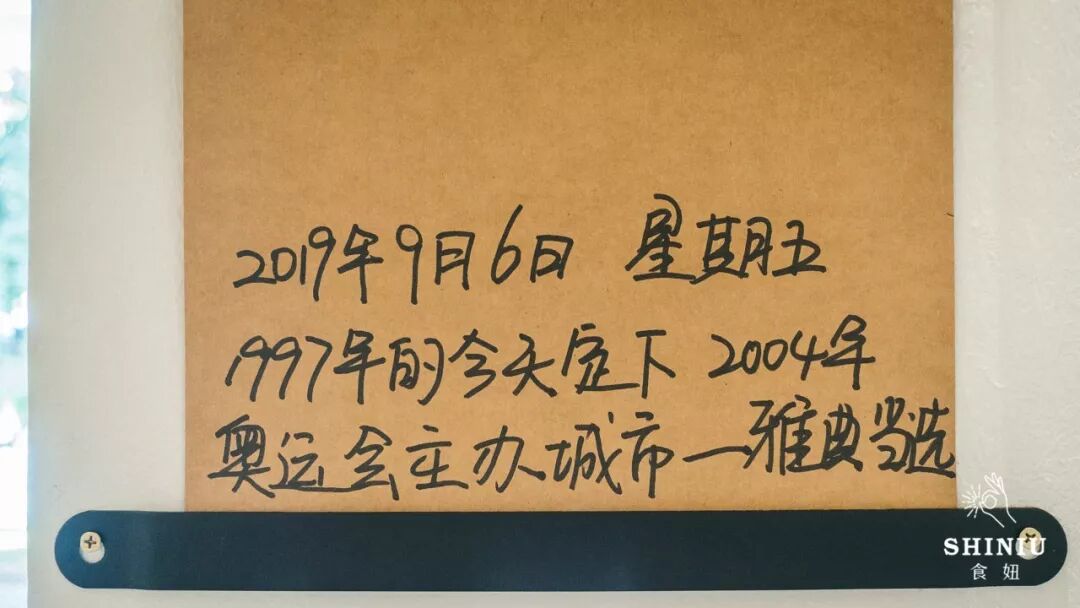 2019年9月6日 星期五
1997年的今天定下 2004年
奥运会主办城市—雅典当选
SHINIU
食妞